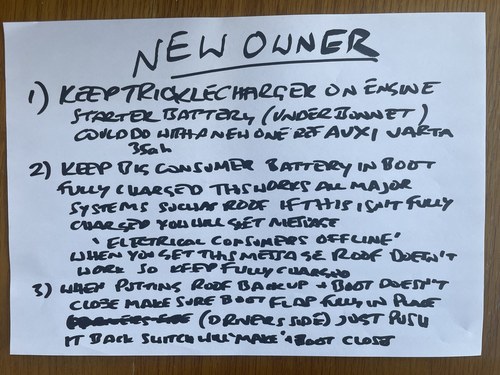 NEW OWNER
1) KEEP TRICKLECHARGER ON ENGINE
STARTER BATTERY (UNDER BONNET)
COULD DO WITH A NEW ONE REF AUX1 VARTA
35ah
2) KEEP BIG CONSUMER BATTERY IN BOOT
FULLY CHARGED THIS WORKS ALL MAJOR
SYSTEMS SUCH AS ROOF IF THIS ISN'T FULLY
CHARGED YOU WILL GET MESSAGE
"ELECTRICAL CONSUMERS OFFLINE"
WHEN YOU GET THIS MESSAGE ROOF DOESN'T
WORK SO KEEP FULLY CHARGED
3) WHEN PUTTING ROOF BACK UP + BOOT DOESN'T
CLOSE MAKE SURE BOOT FLAP FULLY IN PLACE
(DRIVERS SIDE) JUST PUSH
IT BACK SWITCH WILL 'MAKE' + BOOT CLOSE